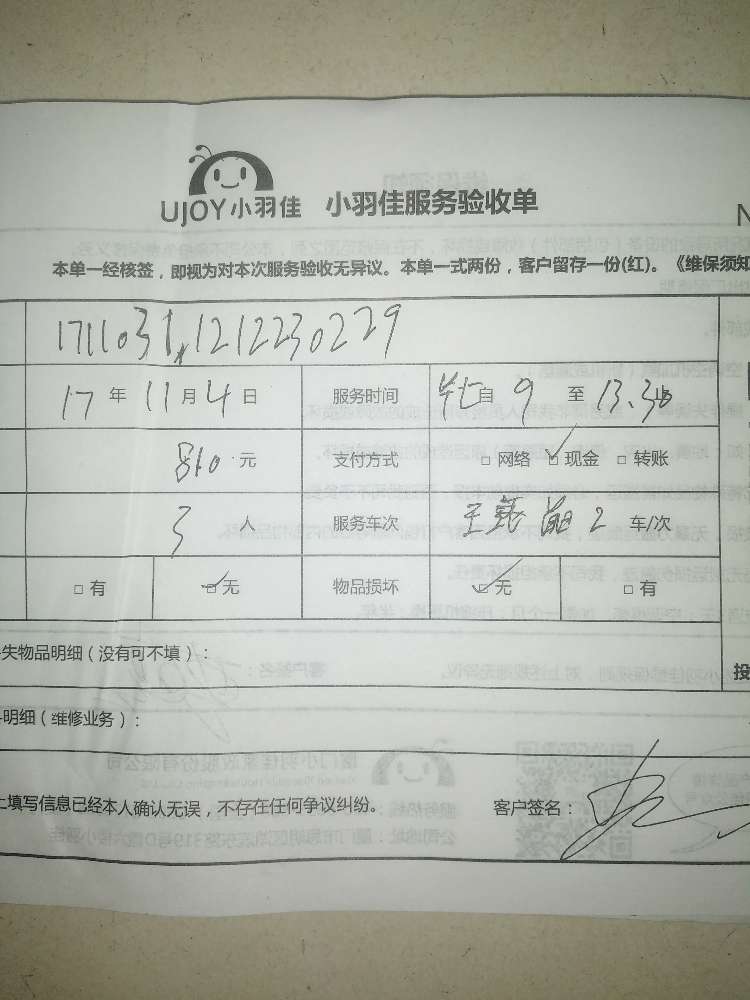 UJOY小羽佳 小羽佳服务验收单
N
本单一经核签，即视为对本次服务验收无异议。本单一式两份，客户留存一份(红)。《维保须知
1711031,1212230229
17 年 11 月 4 日 服务时间 自 9 至 13.30
810 元 支付方式 □ 网络 ☑ 现金 □ 转账
3 人 服务车次 2 车/次
□ 有 ☑ 无 物品损坏 ☑ 无 □ 有
失物品明细（没有可不填）：
投
明细（维修业务）：
上填写信息已经本人确认无误，不存在任何争议纠纷。 客户签名：